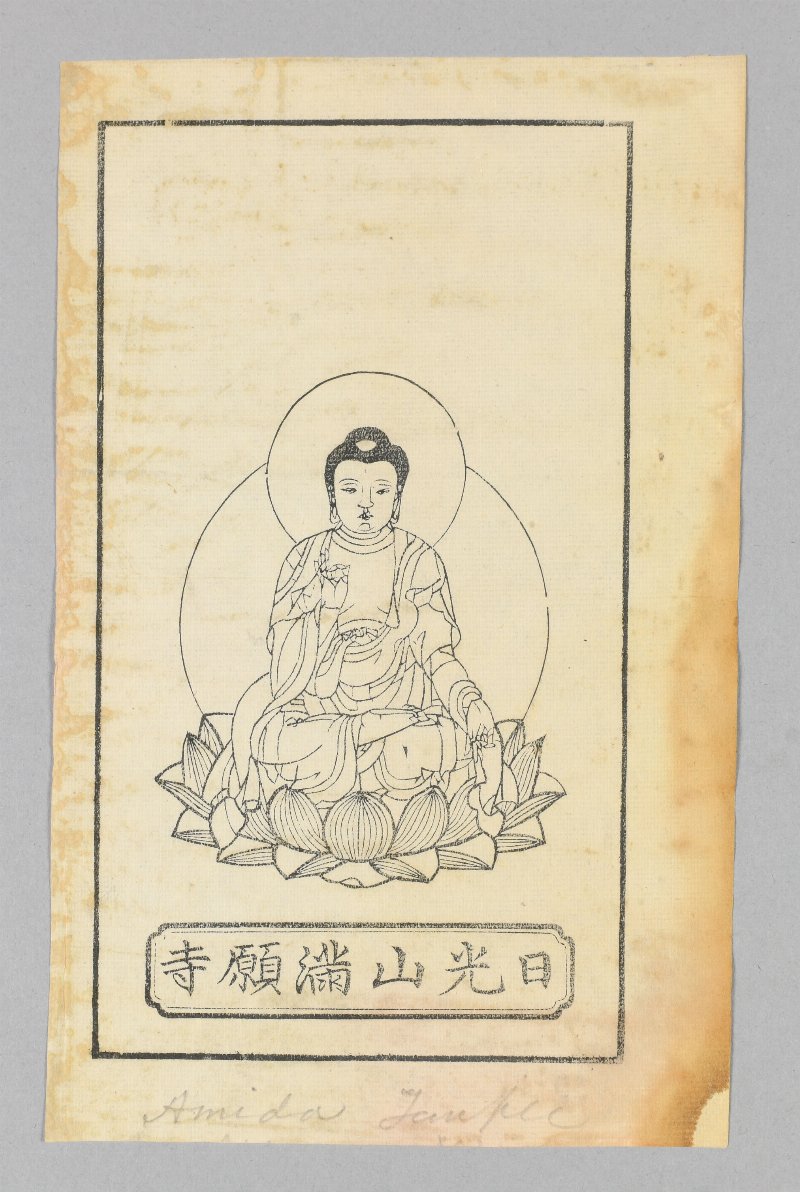 日光山滿願寺
Amida